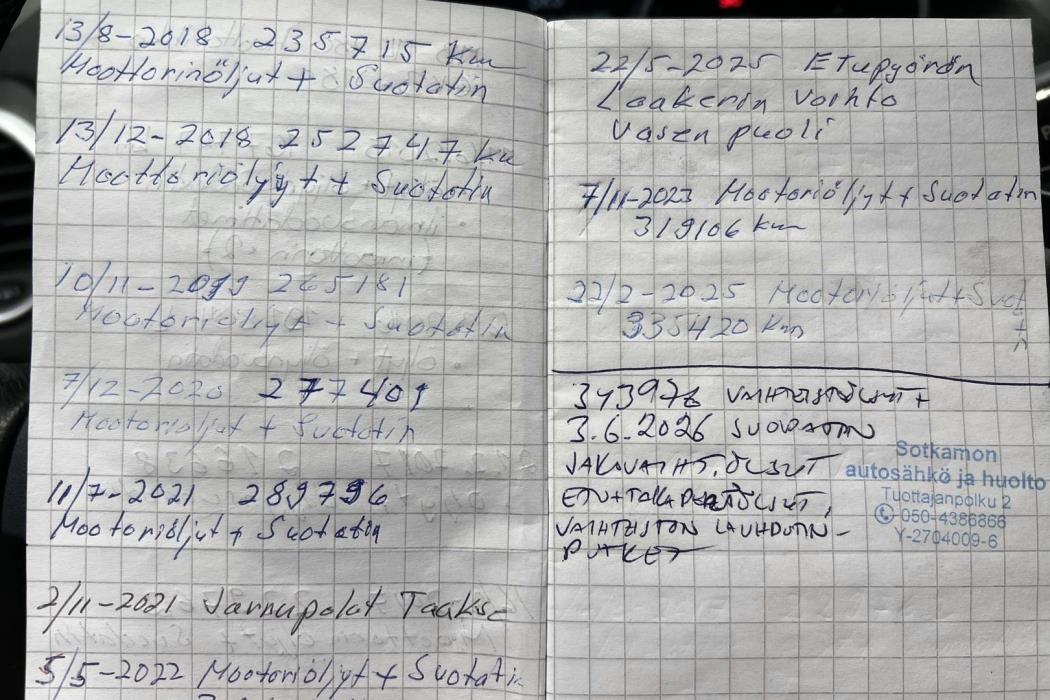 13/8-2018 235715 Km
Moottorinöljyt + Suotatin
13/12-2018 252747 km
Moottoriöljyt + Suotatin
10/11-2019 265181
Mootoriöljyt + Suotatin
7/12-2020 277401
Mootoriöljyt + Suotatin
11/7-2021 289796
Mootoriöljyt + Suotatin
2/11-2021 Jarrupalat Taakse
5/5-2022 Mootoriöljyt + Suotatin
22/5-2025 Etupyörän
Laakerin vaihto
Vasen puoli
7/11-2023 Mootoriöljyt + Suotatin
319106 km
22/2-2025 Mootoriöljyt + Suot
335420 Km
343978 VAIHTEISTÖLJYT +
3.6.2026 SUODATIN
JAKOVAIHT.ÖLJYT
ETU+TAKAPERÄÖLJYT,
VAIHTEISTON LAUHDUTIN-
PUTKET
Sotkamon
autosähkö ja huolto
Tuottajanpolku 2
050-4386866
Y-2704009-6